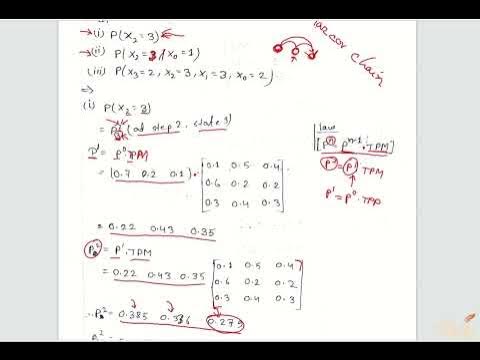 →(i) P(X₂=3)
→(ii) P(X₂=3, X₀=1)
(iii) P(X₃=2, X₂=3, X₁=3, X₀=2)
markov chain
⇒
(i) P(X₂=3)
= P₃² (at step 2, state 3)
law
[Pⁿ = Pⁿ⁻¹ · TPM]
P² = P¹ TPM
P¹ = P⁰ · TPP
P¹ = P⁰ TPM
= (0.7 0.2 0.1) · [0.1 0.5 0.4
0.6 0.2 0.2
0.3 0.4 0.3]
= 0.22 0.43 0.35
P² = P¹ · TPM
= 0.22 0.43 0.35 [0.1 0.5 0.4
0.6 0.2 0.2
0.3 0.4 0.3]
∴ P² = 0.385 0.336 0.279